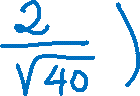 \frac{2}{\sqrt{40}} )